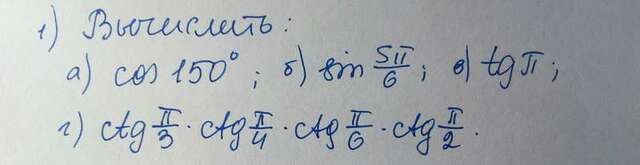 1) Вычислить:
а) cos 150°; б) sin 5π/6; в) tg π;
г) ctg π/3 · ctg π/4 · ctg π/6 · ctg π/2.